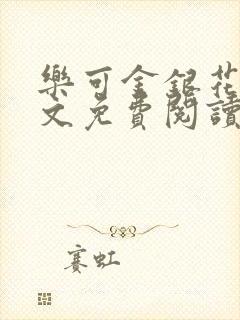 樂可金銀花
文免費閱讀
賽虹